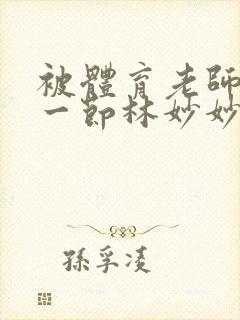 被體育老師
一節林妙妙
孫孚凌